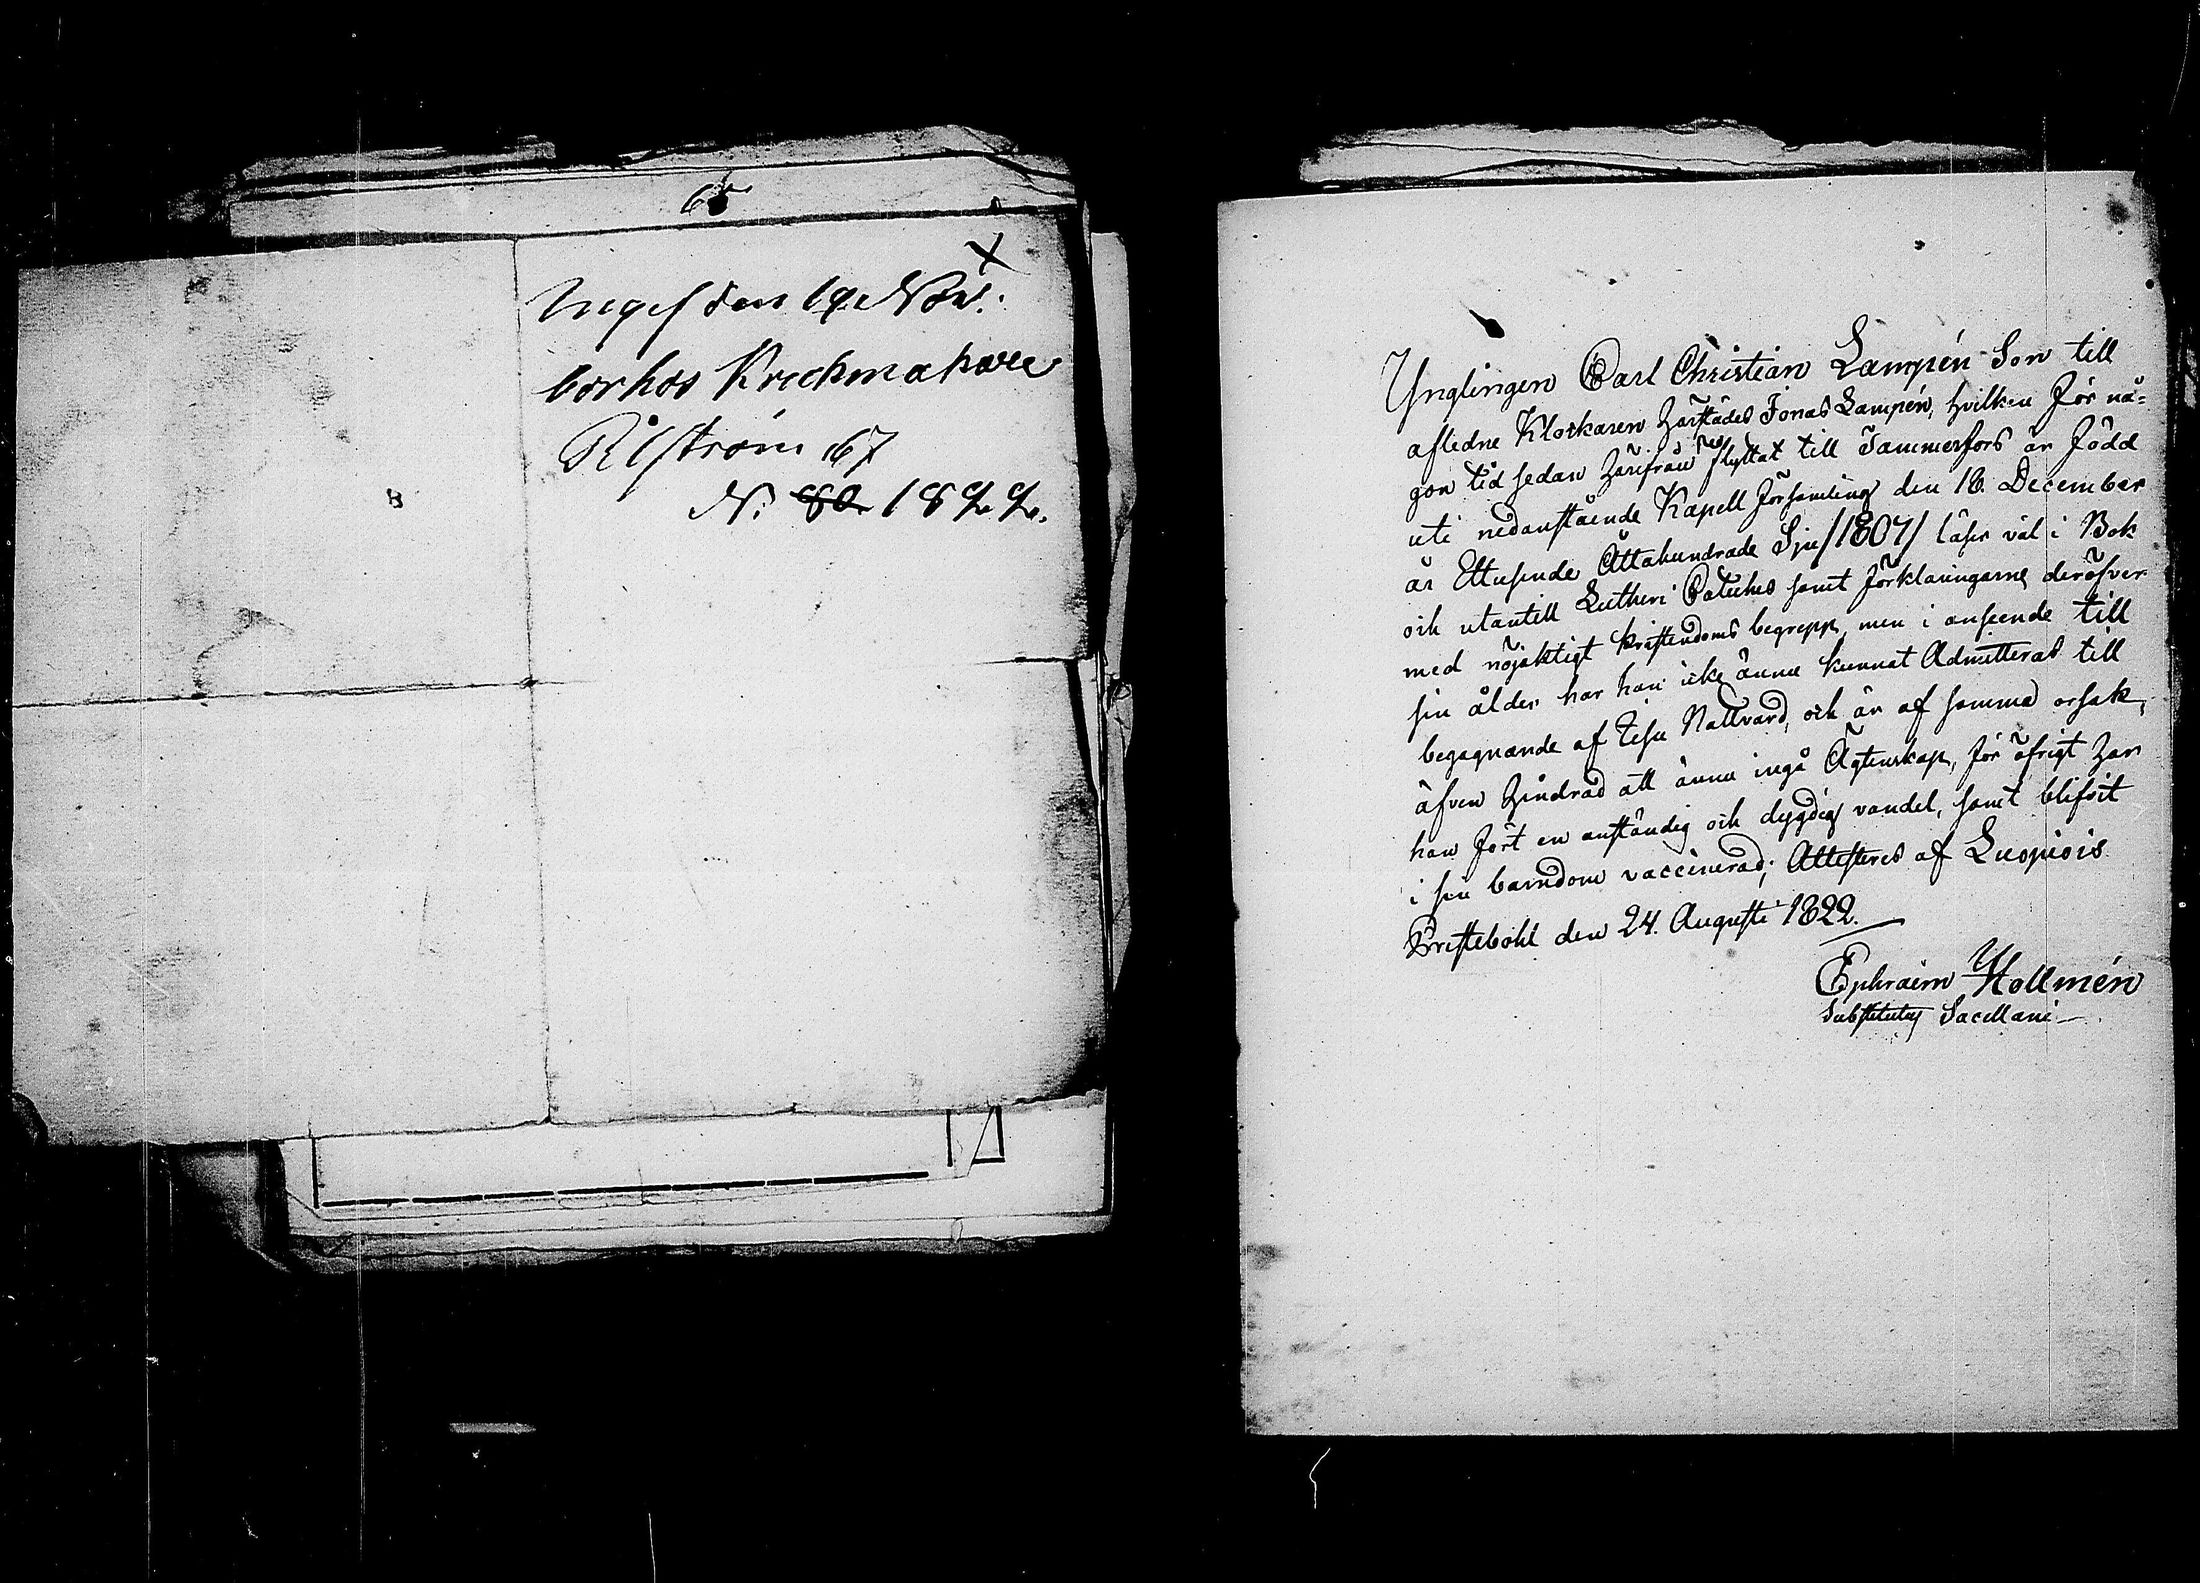 65
X
Ingif den 19e Nov:
bor hos Kruckmakare
Rilström 67
N: 80 1822.
Ynglingen Carl Christian Lampén Son till
aflidne Klockaren härstädes Jonas Lampén, hvilken för nå=
gon tid sedan härifrån flyttat till Tammerfors är född
uti nedanstående Kapell Församling den 16. December
år Ettusende Åttahundrade Sju /1807/ läser väl i Bok
och utantill Lutheri Catches samt förklaringarne deröfver
med nöjaktigt kristendoms begrepp, men i anseende till
sin ålder har han icke ännu kunnat Admitteras till
begagnande af Jesu Nattvard, och är af samma orsak,
äfven hindrad att ännu ingå Ägtenskap, för öfrigt har
han fört en anständig och dygdig vandel, samt blifvit
i sin barndom vaccinerad; Attesteres af Luopiois
Prestebohl den 24. Augusti 1822.
Ephraim Hollmén
Substitutus Sacellani